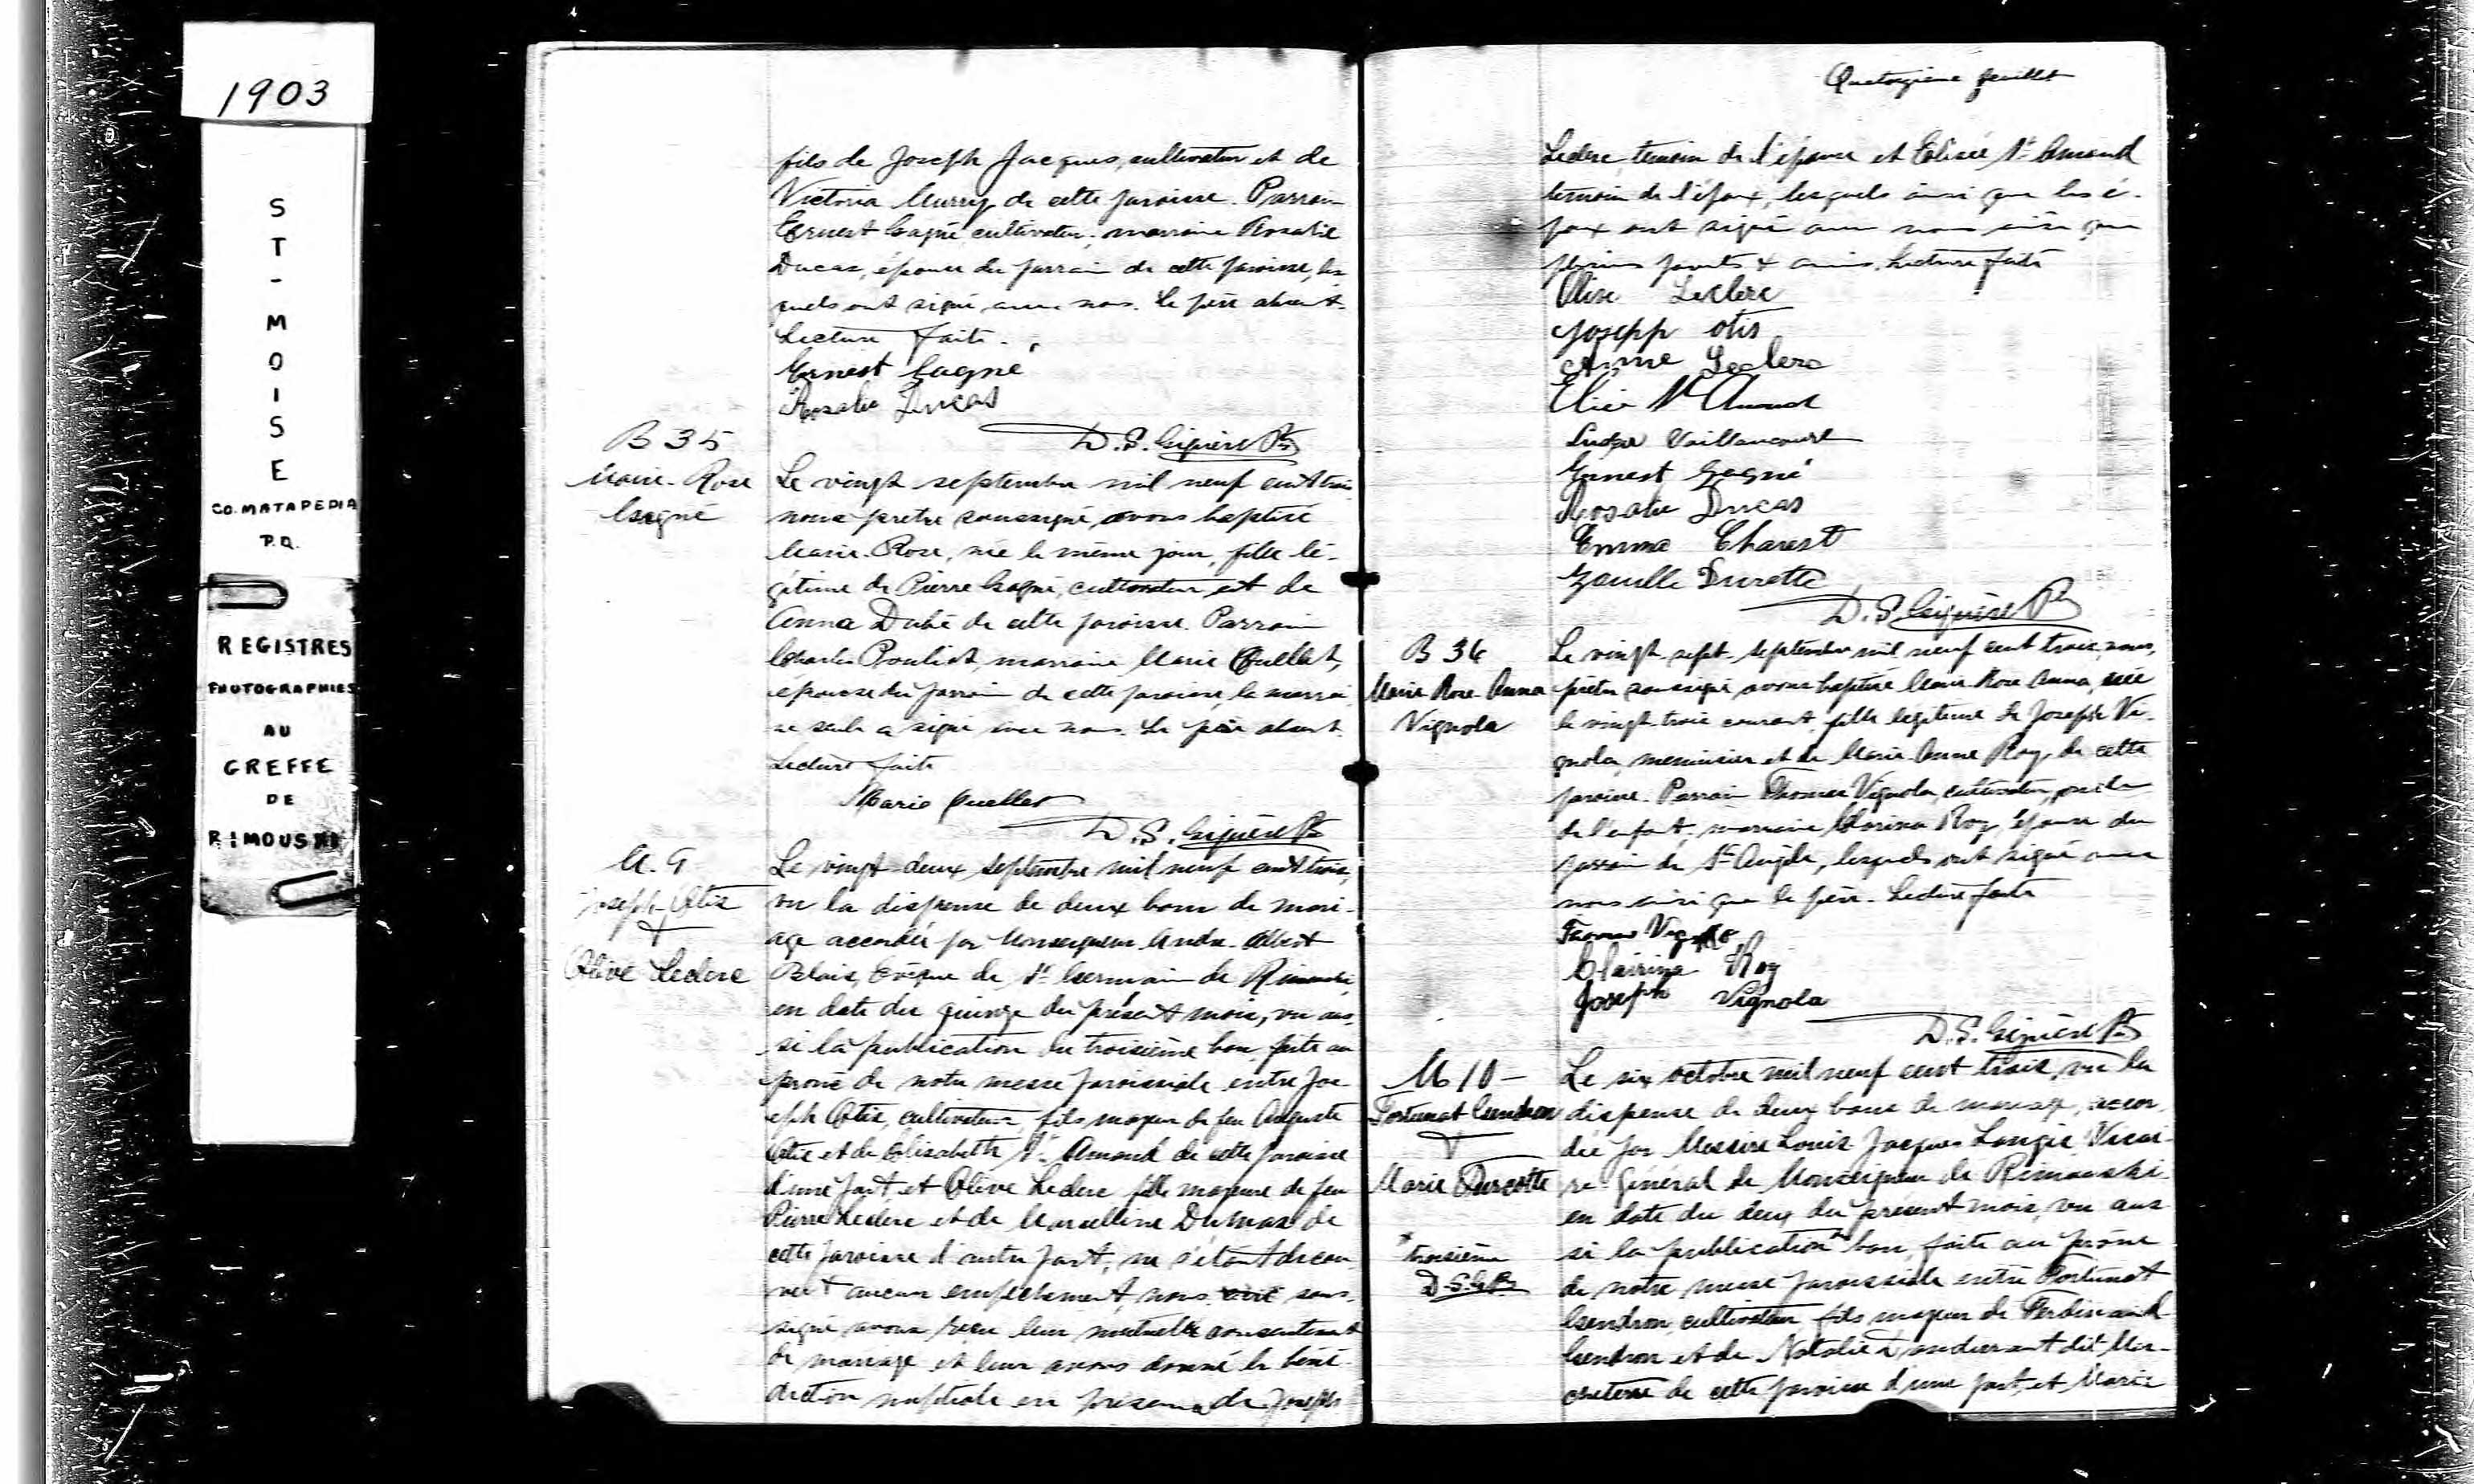 1903
S
T
-
M
O
I
S
E
CO. MATAPEDIA
P.Q.
REGISTRES
PHOTOGRAPHIES
AU
GREFFE
DE
RIMOUSKI
fils de Joseph Jacques, cultivateur et de
Victoria de cette paroisse. Parrain
Ernest Gagné cultivateur, marraine Rosalie
Ducas, épouse du parrain de cette paroisse, les
quels ont signé avec nous. Le père absent.
Lecture faite.
Ernest Gagné
Rosalie Ducas
D. S. Giguère Ptre
B 35
Marie-Rose
Gagné
Le vingt septembre mil neuf cent trois
nous prêtre soussigné, avons baptisé
Marie-Rose, née le même jour, fille lé-
gitime de Pierre Gagné, cultivateur et de
Anna Dubé de cette paroisse. Parrain
Charles Pouliot, marraine Marie Ouellet,
épouse du parrain de cette paroisse, la marrai
ne seule a signé avec nous. Le père absent.
Lecture faite
Marie Ouellet
D. S. Giguère Ptre
M. 9
Joseph Otis
+
Olive Leclerc
Le vingt-deux septembre mil neuf cent trois,
vu la dispense de deux bans de mari-
age accordée par Monseigneur André-Albert
Blais, Evêque de St Germain de Rimouski,
en date du quinze du présent mois, vu aus
si la publication du troisième ban, faite au
prône de notre messe paroissiale entre Jos
eph Otis, cultivateur, fils majeur de feu Auguste
Otis et de Elisabeth St Amand de cette paroisse
d'une part, et Olive Leclerc fille majeure de feu
Pierre Leclerc et de Marcelline Dumas de
cette paroisse d'autre part; ne s'étant décou
vert aucun empêchement, nous sous
signé avons reçu leur mutuel consentement
de mariage et leur avons donné la béné-
diction nuptiale en présence de Joseph
Quatorzième feuillet
Leclerc, témoin de l'épouse et Elisée St Amand
témoin de l'époux, lesquels ainsi que les é-
poux ont signé avec nous ainsi que
plusieurs parents & amis. Lecture faite
Olive Leclerc
Josepp otis
Leclerc
St Amand
Ludger Vaillancourt
Ernest Gagné
Rosalie Ducas
Emma Charest
Durette
D. S. Giguère Ptre
B 36
Marie Rose Anna
Vignola
Le vingt-sept septembre mil neuf cent trois, nous,
prêtre soussigné avons baptisé Marie Rose Anna, née
le vingt-trois courant, fille légitime de Joseph Vi-
gnola, menuisier et de Marie Anne Roy, de cette
paroisse. Parrain Thomas Vignola, cultivateur, oncle
de l'enfant, marraine Clarina Roy, épouse du
parrain de St Angèle, lesquels ont signé avec
nous ainsi que le père. Lecture faite
Vignola
Clairina Roy
Joseph Vignola
D. S. Giguère Ptre
M 10 -
Fortunat Gendron
+
Marie Turcotte
* troisième
D.S.G. Ptre
Le six octobre mil neuf cent trois, vu la
dispense de deux bans de mariage, accor
dée par Messire Louis-Jacques Langis Vicai-
re-Général de Monseigneur de Rimouski
en date du deux du présent mois, vu aus
si la publication * ban, faite au prône
de notre messe paroissiale entre Fortunat
Gendron, cultivateur fils majeur de Ferdinand
Gendron et de Natalie dit
de cette paroisse d'une part, et Marie